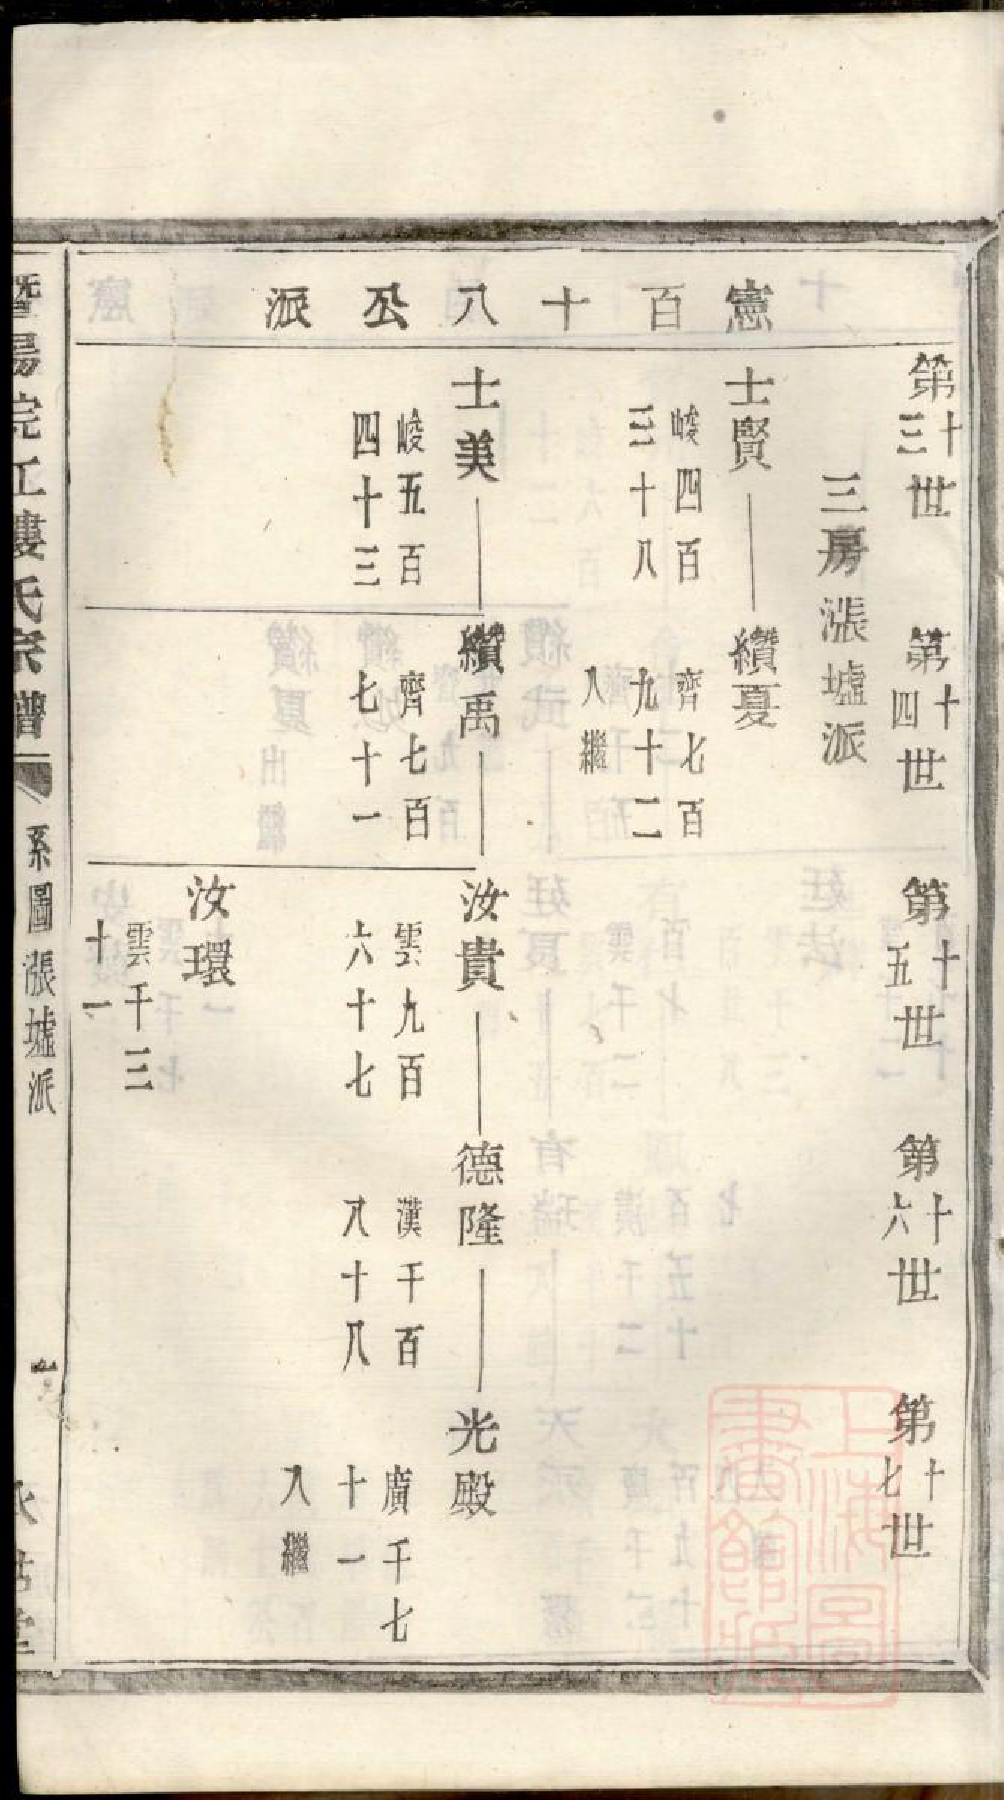 憲百十八公派
第十三世
第十四世
第十五世
第十六世
第十七世
三房漲墟派
士賢
峻四百
三十八
纘夏
齊七百
九十二
入繼
士美
峻五百
四十三
纘禹
齊七百
七十一
汝貴
雲九百
六十七
德隆
漢千百
八十八
光殿
廣千七
十一
入繼
汝環
雲千三
十一
暨陽浣江婁氏宗譜
系圖漲墟派
上海圖書館藏